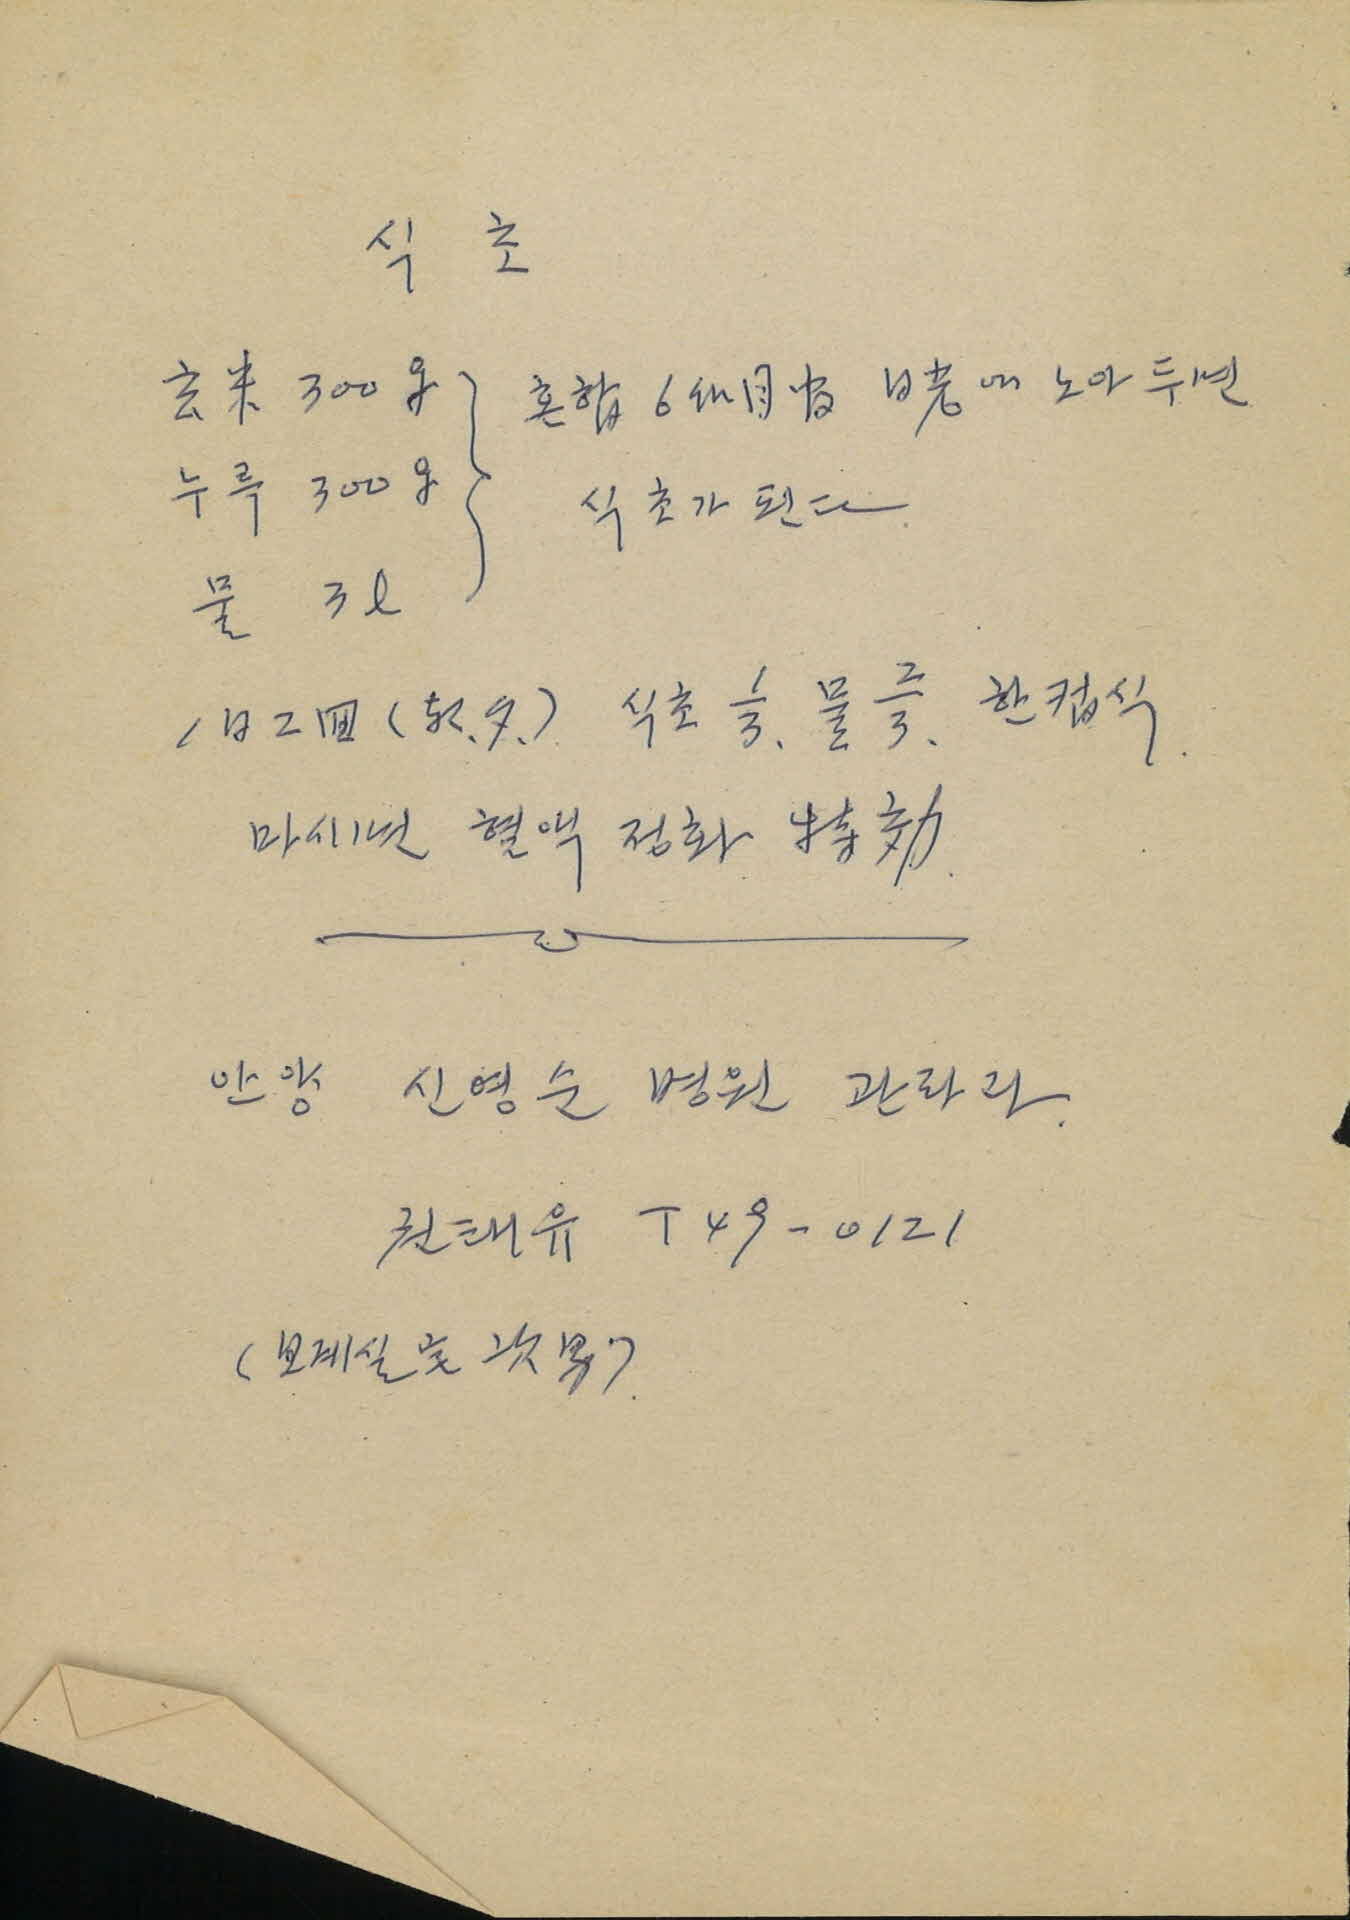 식 초
玄米 300g 혼합 6개月間 日光에 노아 두면
누룩 300g 식초가 된다.
물 3ℓ
1日 2回 (朝.夕.) 식초 1/3, 물 2/3, 한컵식.
마시면 혈액 정화 特効.
안양 신영순 병원 관리과.
권태유 T 49-0121